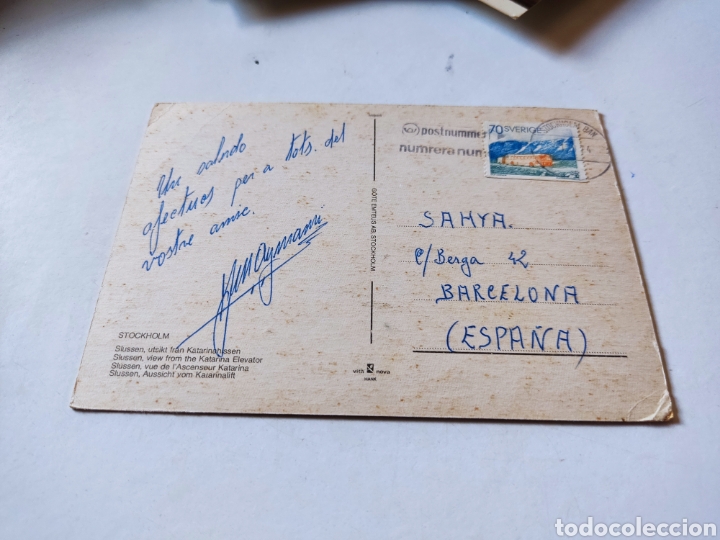 Un saludo
afectuos per a tots. del
vostre amic.
STOCKHOLM
Slussen, utsikt från Katarinahissen
Slussen, view from the Katarina Elevator
Slussen, vue de l'Ascenseur Katarina
Slussen, Aussicht vom Katarinalift
GÖTE EMTELIUS AB, STOCKHOLM
vith nova
postnummer
numrera num
70 SVERIGE
SAMYA.
C/ Berga 42
BARCELONA
(ESPAÑA)
todocoleccion